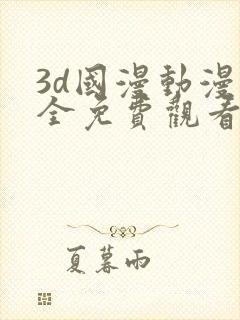 3d國漫動漫
全免費觀看
夏暮雨